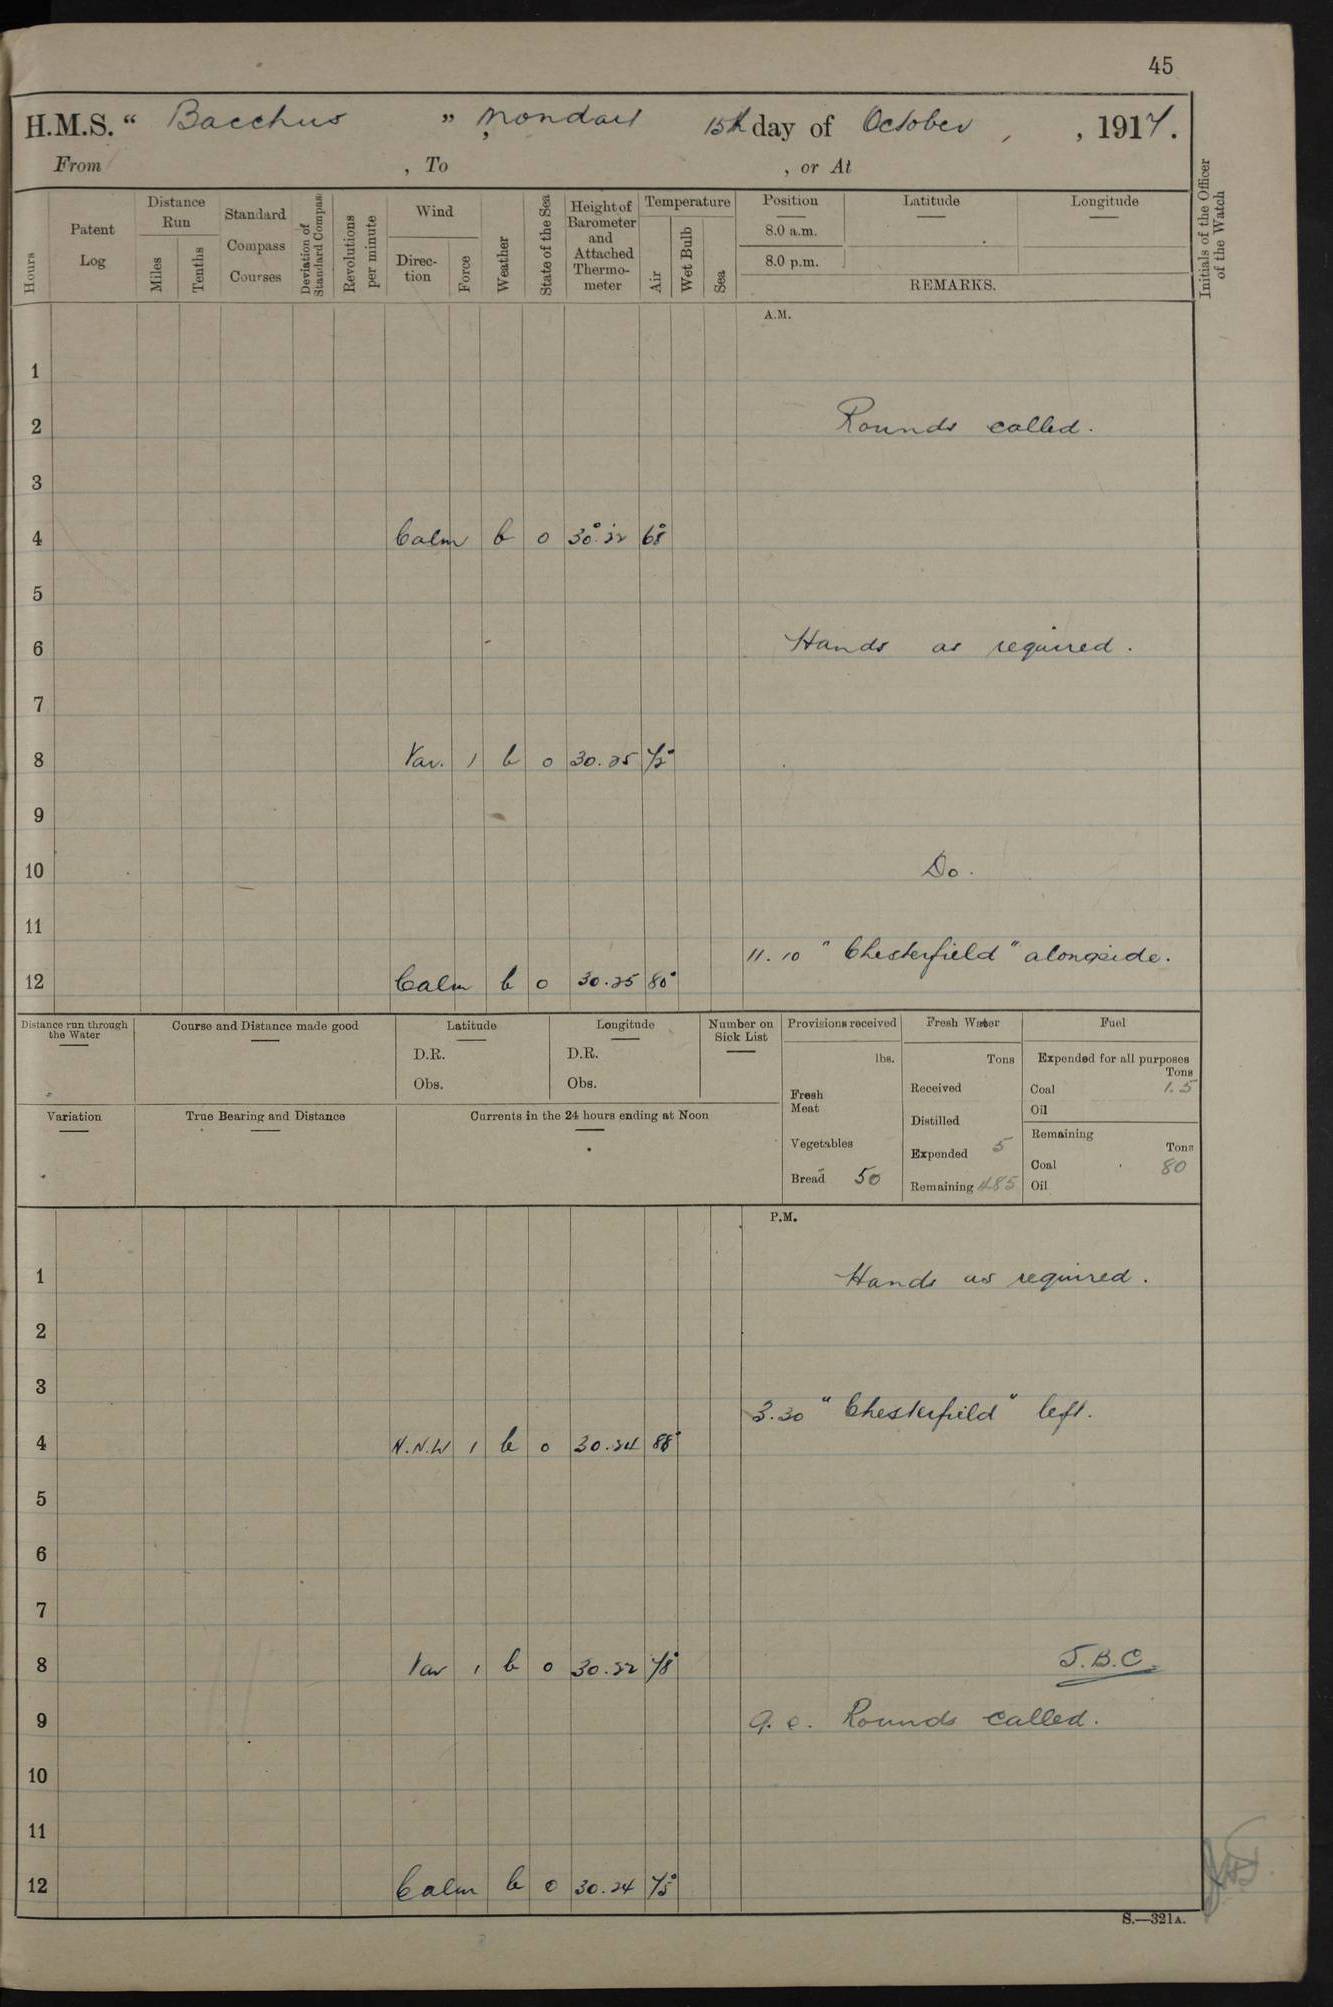 45
H.M.S. “ Bacchus ” , Monday 15th day of October , , 1917.
From , To , or At
Hours
Patent Log
Distance Run
Miles
Tenths
Standard Compass Courses
Deviation of Standard Compass
Revolutions per minute
Wind
Direc-tion
Force
Weather
State of the Sea
Height of Barometer and Attached Thermo-meter
Temperature
Air
Wet Bulb
Sea
Position
8.0 a.m.
8.0 p.m.
Latitude
Longitude
REMARKS.
Initials of the Officer of the Watch
A.M.
1
2 Rounds called.
3
4 Calm b 0 30.22 68°
5
6 Hands as required.
7
8 Var. 1 b 0 30.25 72°
9
10 Do.
11
11.10 “Chesterfield” alongside.
12 Calm b 0 30.25 80°
Distance run through the Water
Course and Distance made good
Latitude
D.R.
Obs.
Longitude
D.R.
Obs.
Number on Sick List
Provisions received
lbs.
Fresh Meat
Vegetables
Bread 50
Fresh Water
Tons
Received
Distilled
Expended 5
Remaining 485
Fuel
Expended for all purposes
Tons
Coal 1.5
Oil
Remaining
Tons
Coal 80
Oil
Variation
True Bearing and Distance
Currents in the 24 hours ending at Noon
P.M.
1 Hands as required.
2
3
3.30 “Chesterfield” left.
4 N.N.W 1 b 0 30.24 88°
5
6
7
8 Var 1 b 0 30.22 78° J.B.C.
9 9.0. Rounds called.
10
11
12 Calm b 0 30.24 75°
S.—321A.